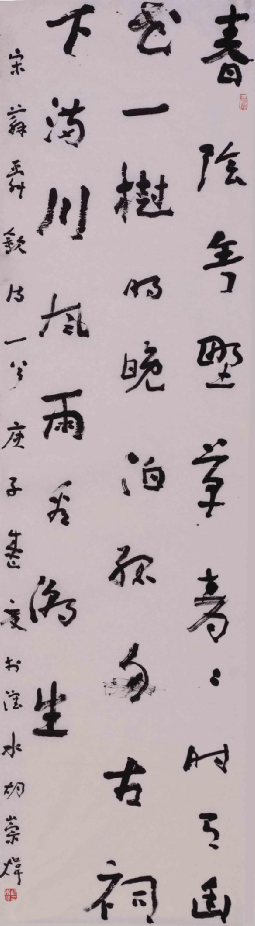 春陰垂野草青〻時有幽
花一樹明晚泊孤舟古祠
下滿川風雨看潮生
宋蘇舜欽詩一首庚子歲夏於瀋水胡崇煒